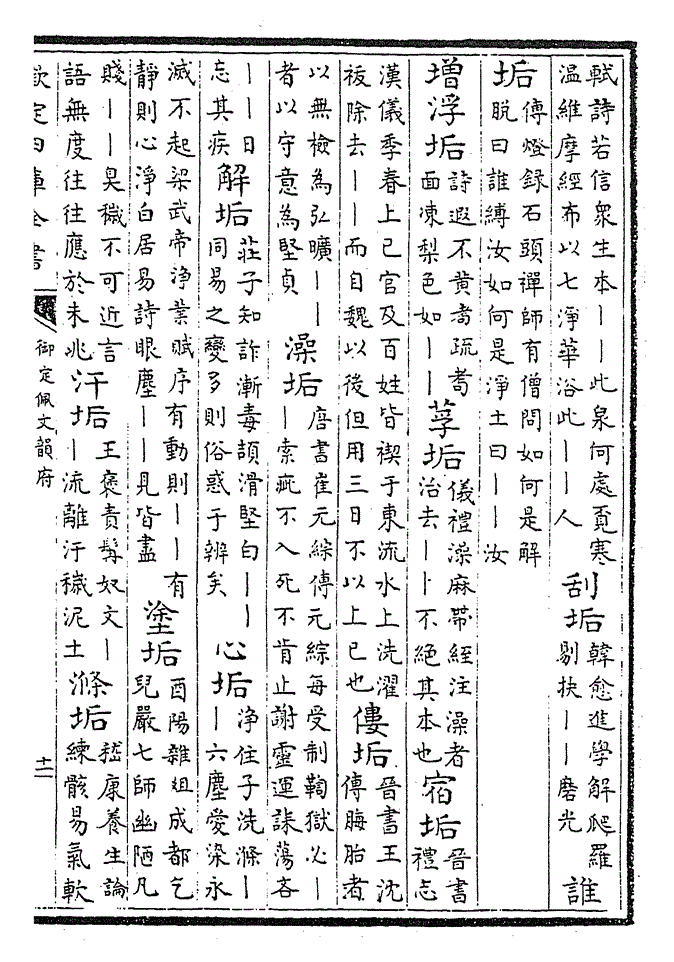 軾詩若信衆生本丨丨此泉何處覓寒
温維摩經布以七淨華浴此丨丨人
刮垢
韓愈進學解爬羅
剔抉丨丨磨光
誰
垢
傳燈錄石頭禪師有僧問如何是解
脱曰誰縛汝如何是淨土曰丨丨汝
增浮垢
詩遐不黄耉疏耉
面凍梨色如丨丨
莩垢
儀禮澡麻帶絰注澡者
治去丨丨不絕其本也
宿垢
晉書
禮志
漢儀季春上巳官及百姓皆禊于東流水上洗濯
祓除去丨丨而自魏以後但用三日不以上巳也
僂垢
晉書王沈
傳晦胎者
以無檢為弘曠丨丨
者以守意為堅貞
澡垢
唐書崔元綜傳元綜每受制鞫獄必丨
丨索疵不入死不肯止謝靈運誄蕩吝
丨丨日
忘其疾
解垢
莊子知詐漸毒頡滑堅白丨丨
同易之變多則俗惑于辨矣
心垢
淨住子洗滌丨
丨六塵愛染永
滅不起梁武帝淨業賦序有動則丨丨有
靜則心淨白居易詩眼塵丨丨見皆盡
塗垢
酉陽雜俎成都乞
兒嚴七師幽陋凡
賤丨丨臭穢不可近言
語無度往往應於未兆
汗垢
王褒責髯奴文丨
丨流離汗穢泥土
滌垢
嵇康養生論
練骸易氣軟
欽定四庫全書
御定佩文韻府
十二